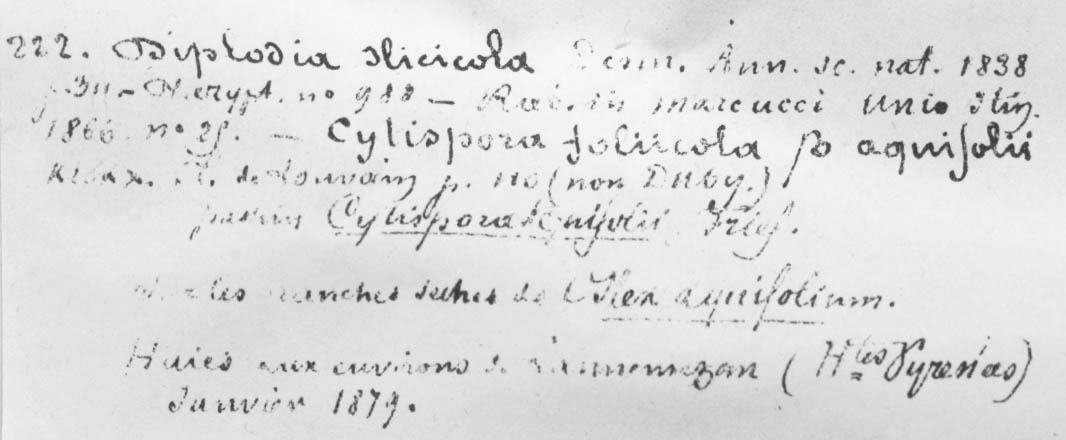 222. Diplodia ilicicola Desm. Ann. sc. nat. 1838
p. 311 — Pl. crypt. no 988 — Rab. in Marcucci Unio Itin.
1866. no 25. — Cytispora foliicola β aquifolii
Kickx. Fl. de Louvain p. 110 (non Duby.)
Cytispora aquifolii Fries.
Sur les branches sèches de l'Ilex aquifolium.
Haies aux environs de Lannemezan (Htes Pyrénées)
Janvier 1879.